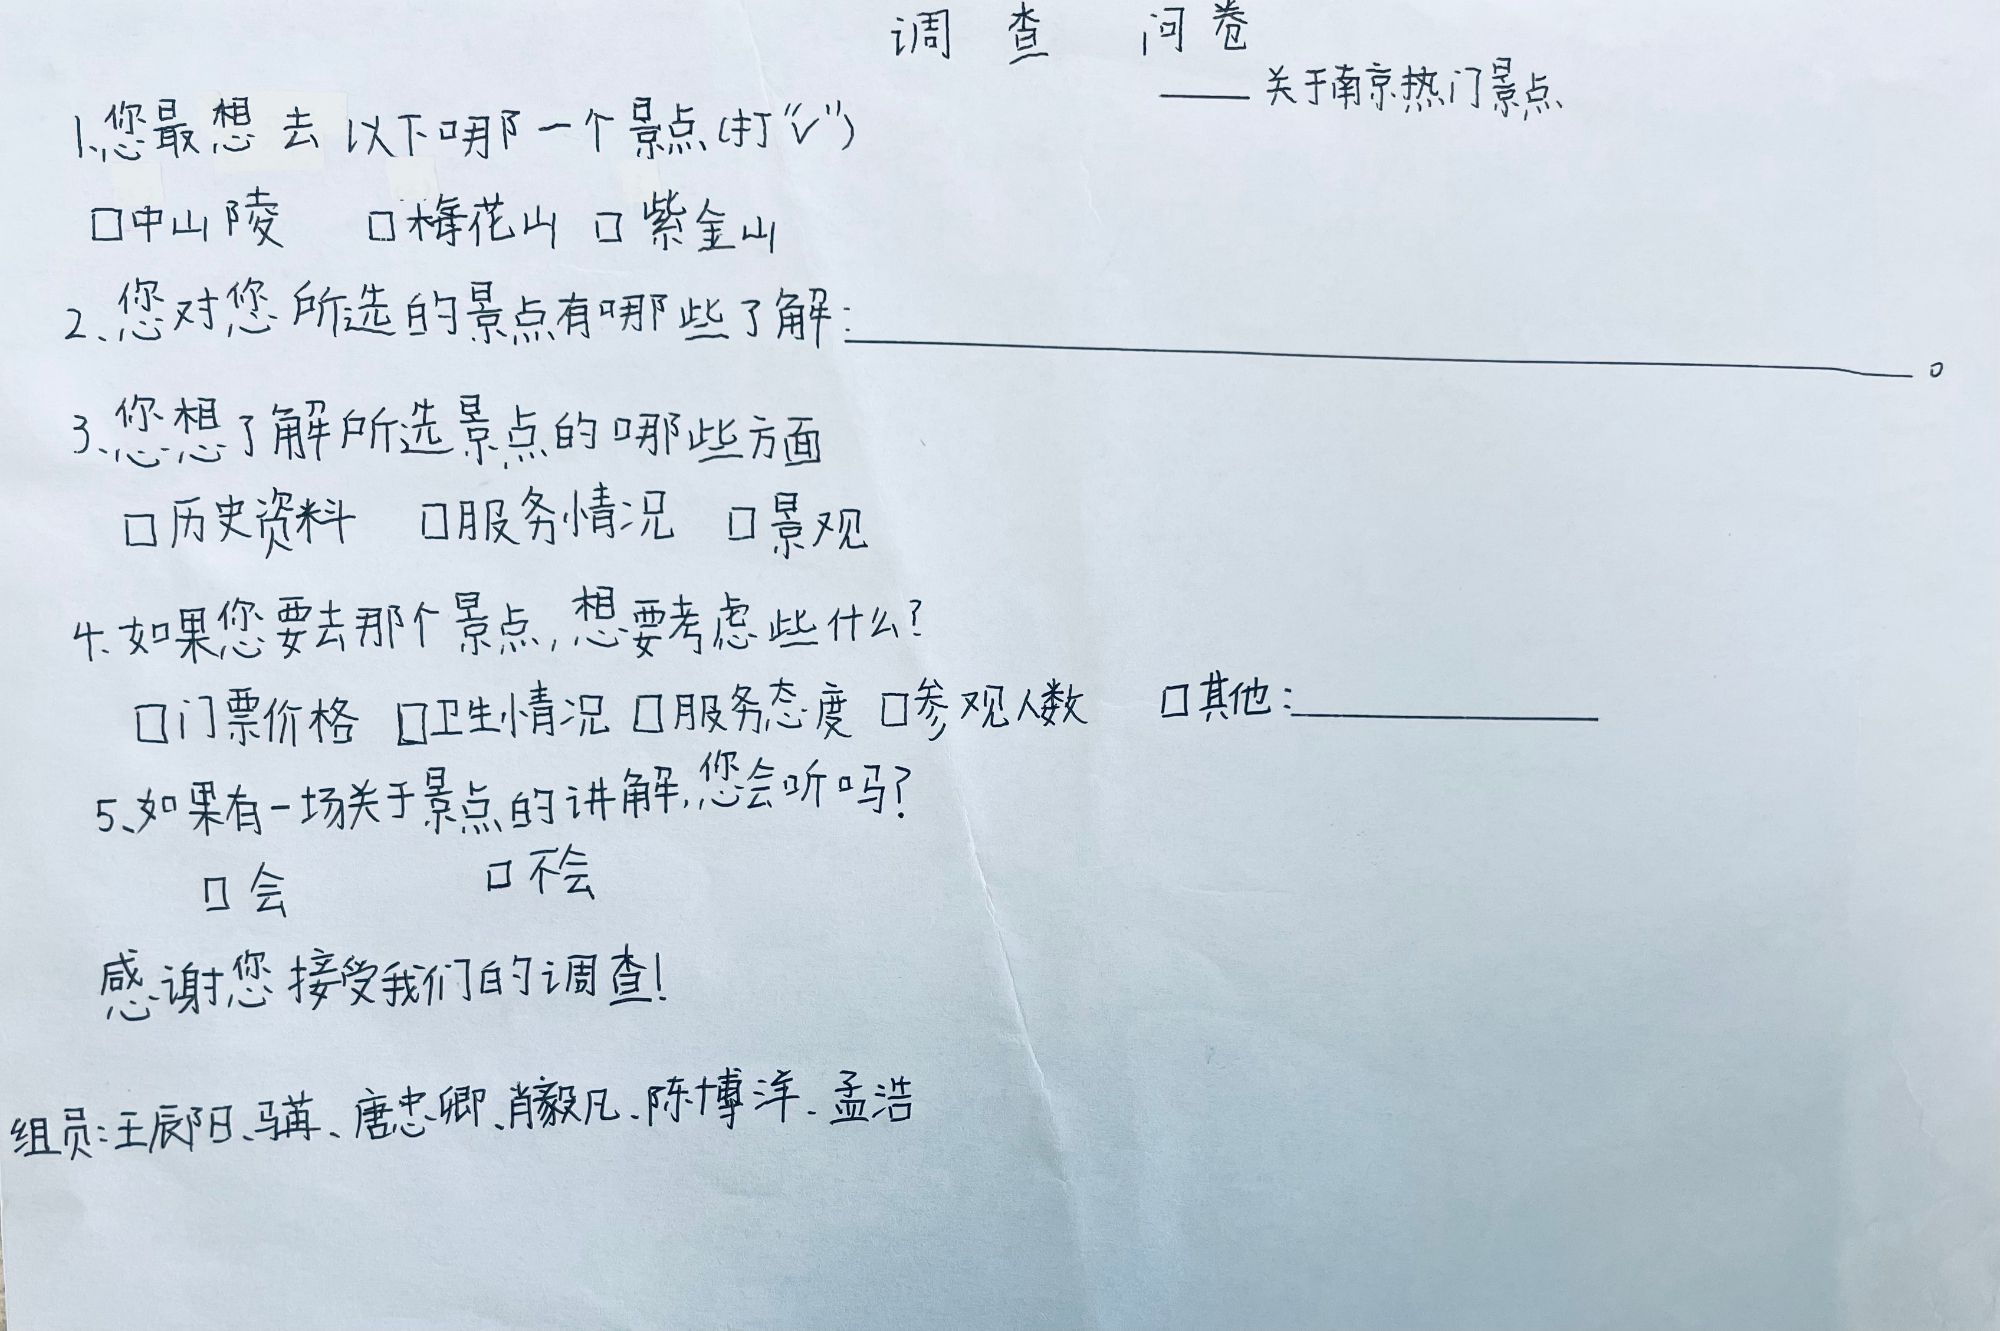 调查问卷
——关于南京热门景点
1、您最想去以下哪一个景点(打“√”)
□中山陵 □梅花山 □紫金山
2、您对您所选的景点有哪些了解:____。
3、您想了解所选景点的哪些方面
□历史资料 □服务情况 □景观
4、如果您要去那个景点,想要考虑些什么?
□门票价格 □卫生情况 □服务态度 □参观人数 □其他:____
5、如果有一场关于景点的讲解,您会听吗?
□会 □不会
感谢您接受我们的调查!
组员:王辰阳、骐苒、唐忠卿、肖毅凡、陈博洋、孟浩